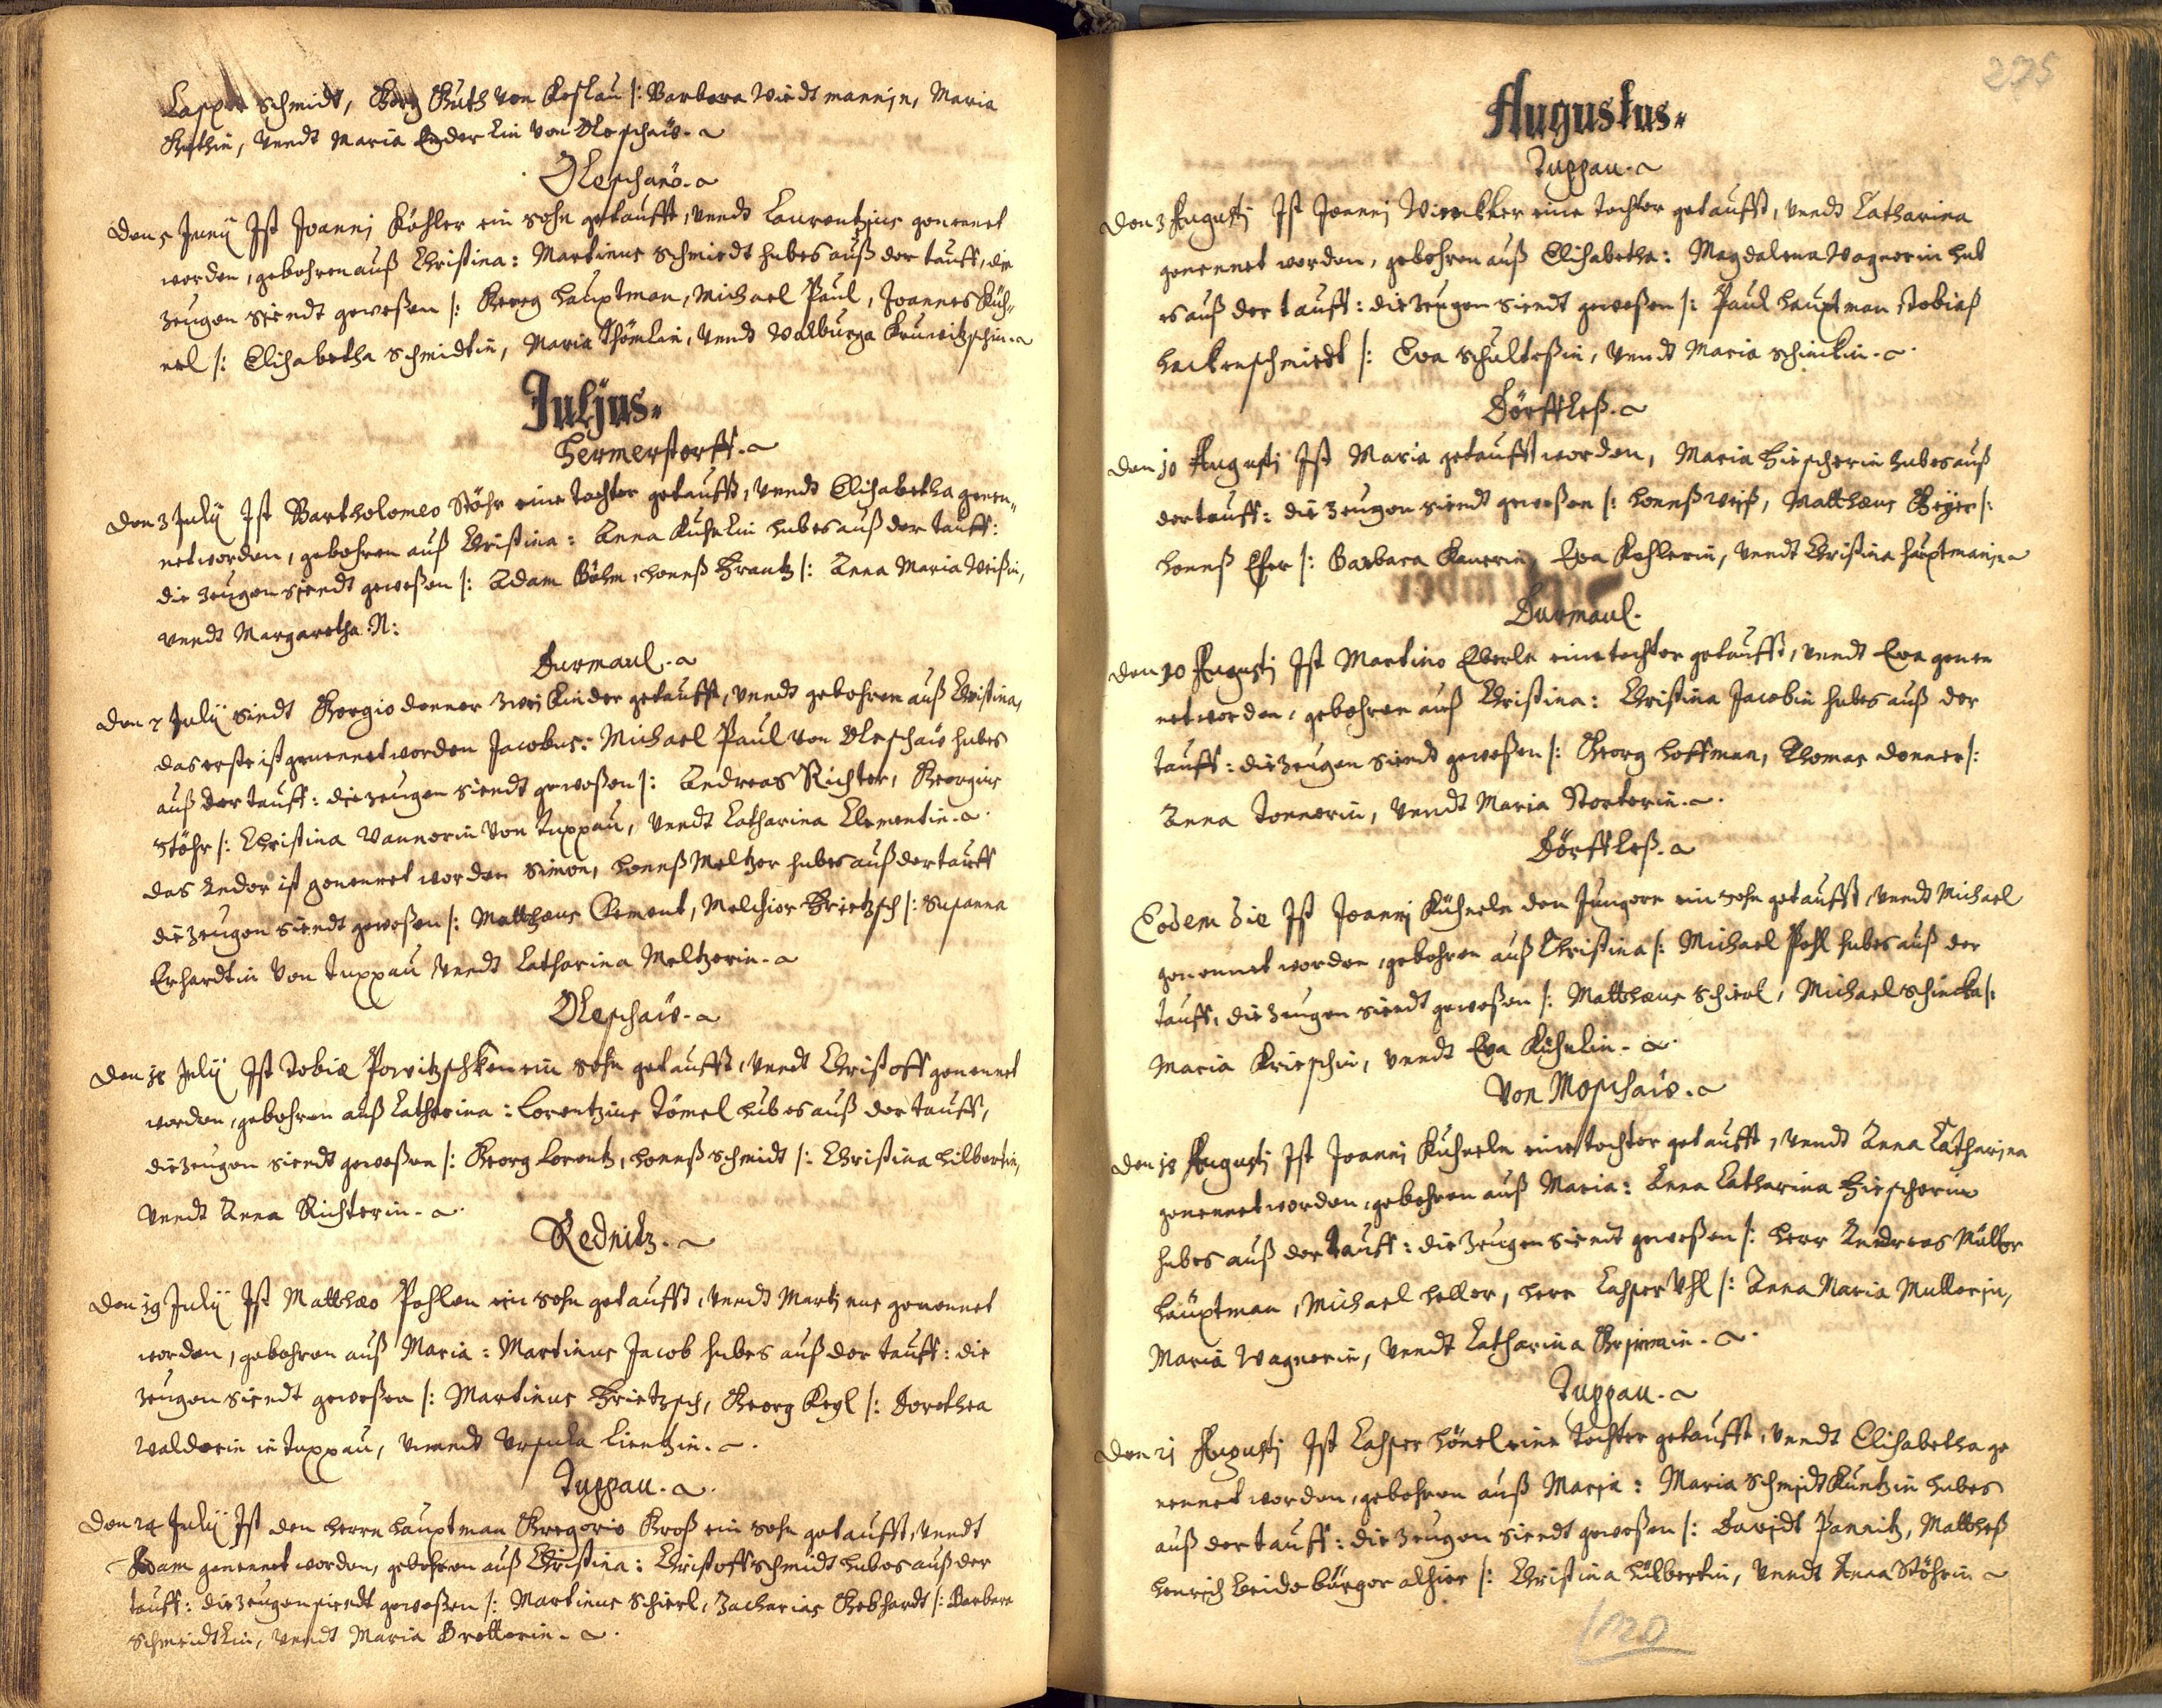 Casper Schmidt, Georg Guth von Koslau /: Barbara Wiedtmannin, Maria
Guthin, vnndt Maria Enderlin von Oleschaw.
Oleschaw.
Den 5 Junij Ist Joannj Köhler ein sohn getaufft, vnndt Laurentzius genennet
worden, gebohren auß Christina: Martinus Schmiedt hubes auß der tauff, die
zeugen siendt geweßen /: Georg hauptman, Michael Paul, Joannes Küh=
nel /: Elisabetha Schmidtin, Maria Thömlin, vnndt Walburga
Julius.
Hermerstorff.
Den 3 Julij Ist Bartholomeo Stöhr eine tochter getaufft, vnndt Elisabetha genen=
net worden, gebohren auß Christina: Anna Kühnlin hubes auß der tauff:
die zeugen siendt geweßen /: Adam Böhm, honnß Frantz /: Anna Maria Weißin,
vnndt Margaretha N:
Durmaul.
Den 7 Julij siendt Georgio donner zwei Kinder getaufft, vnndt gebohren auß Christina,
das erste ist genennet worden Jacobus: Michael Paul von Oleschaw hubes
auß der tauff: die zeugen siendt geweßen /: Andreas Richter, Georgius
Stöhr /: Christina Wannerin von Luppau, vnndt Catharina Clementin.
das ander ist genennet worden Simon, honnß Meltzer hubes auß der tauff
die zeugen siendt geweßen /: Matthæus Clement, Melchior Frietzsch /: Susanna
Erhardtin von Luppau vnndt Catharina Meltzerin.
Oleschaw.
Den 18 Julij Ist Tobiæ Powitzschken ein sohn getaufft, vnndt Christoff genennet
worden, gebohren auß Catharina: Lorentzius Tömel hub es auß der tauff,
die zeugen siendt geweßen /: Georg Lorentz, honnß schmidt /: Christina hilbertin,
vnndt Anna Richterin.
Rednitz.
Den 19 Julij Ist Matthæo Pohlen ein sohn getaufft, vnndt Martinus genennet
worden, gebohren auß Maria: Martinus Jacob hubes auß der tauff: die
zeugen siendt geweßen /: Martinus Frietzsch, Georg Kegl /: Dorothea
Walderin in Luppau, vnndt Vrsula Lientzin.
Luppau.
Den 24 Julij Ist den herrn hauptman Gregorio Groß ein sohn getaufft, vnndt
Adam genennet worden, gebohren auß Christina: Christoff schmidt hubes auß der
tauff: die zeugen siendt geweßen /: Martinus Schierl, Zacharias Gebhardt /: Barbara
Schmidtlin, vnndt Maria Bretterin.
275
Augustus.
Luppau.
Den 3 Augustj Ist Joannj eine tochter getaufft, vnndt Catharina
genennet worden, gebohren auß Elisabetha: Magdalena Wagnerin hub
es auß der tauff: die zeugen siendt geweßen /: Paul hauptman Tobias
hackenschmiedt /: Eva Schulteßin, vnndt Maria Schinckin.
Dörffleß.
Den 10 Augustj Ist Maria getaufft worden, Maria Fiescherin hubes auß
der tauff: die zeugen siendt geweßen /: honnß weiß, Matthæus Geyer /:
honnß Eser /: Barbara Kauerin, Eva Kohlerin, vnndt Christina hauptmanin
Durmaul.
Den 10 Augustj Ist Martino Eberle eine tochter getaufft, vnndt Eva genen
net worden, gebohren auß Christina: Christina Jacobin hubes auß der
tauff: die zeugen siendt geweßen /: Georg hoffman, Thomas donner /:
Anna Tonnerin, vnndt Maria Storterin.
Dörffleß.
Eodem die Ist Joannj Kühneln den Jungern ein sohn getaufft, vnndt Michael
genennet worden, gebohren auß Christina /: Michael Pohl hubes auß der
tauff, die zeugen siendt geweßen /: Matthæus Schierl, Michael Schincka /:
Maria Krieschin, vnndt Eva Kühnlin.
Von Moschaw.
Den 18 Augustj Ist Joannj Kühneln eine tochter getaufft, vnndt Anna Catharina
genennet worden, gebohren auß Maria: Anna Catharina Fiescherin
hubes auß der tauff: die zeugen siendt geweßen /: herr Andreas Müller
hauptman, Michael heller, herr Casper Vhl /: Anna Maria Mullerin,
Maria Wagnerin, vnndt Catharina
Luppau.
Den 21 Augustj Ist Casper hönel eine tochter getaufft, vnndt Elisabetha ge
nennet worden, gebohren auß Maria: Maria Schmidt Kuntzin hubes
auß der tauff: die zeugen siendt geweßen /: Davidt Pannitz, Mattheß
henrich beide bürger alhier /: Christina hülbertin, vnndt Anna Stöhrin
120